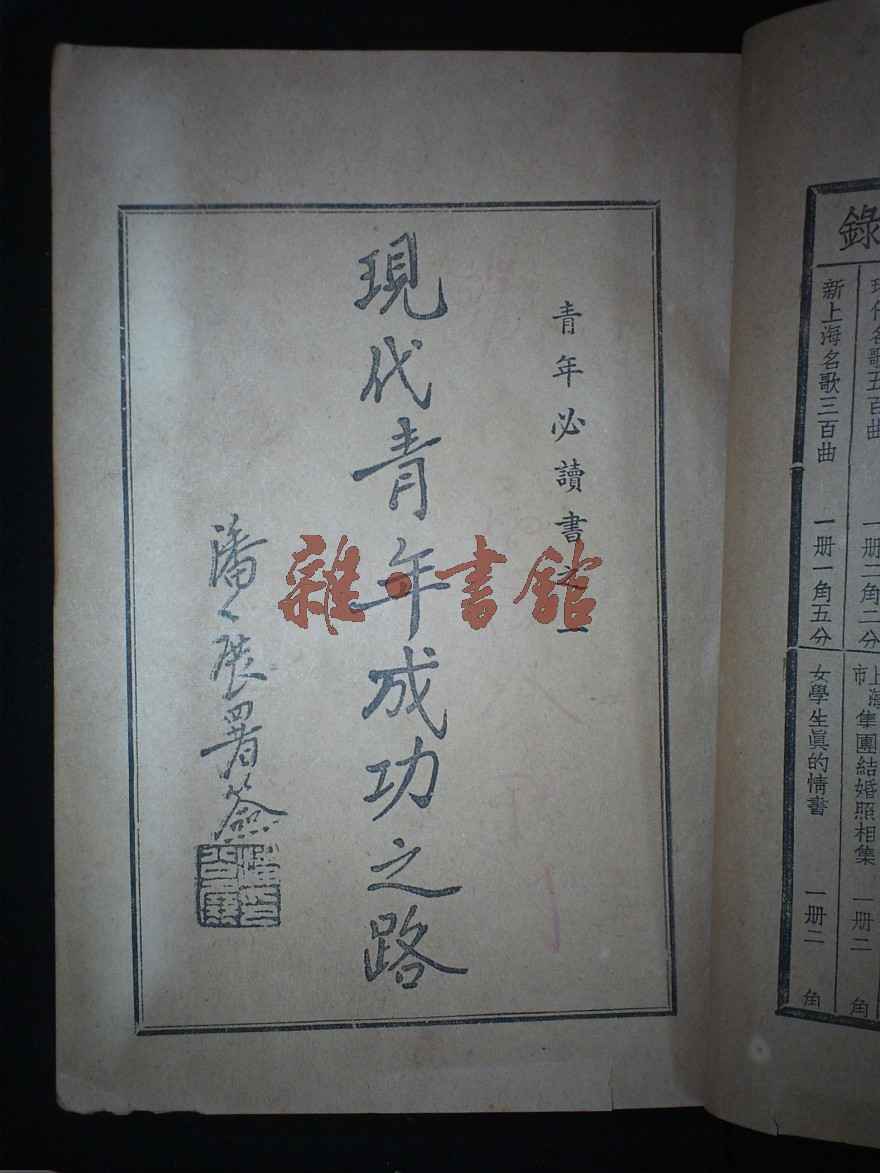 錄
現代名歌五百曲 一册二角二分
新上海名歌三百曲 一册一角五分
上海市集團結婚照相集 一册二角
女學生眞的情書 一册二角
青年必讀書之一
現代青年成功之路
潘公展署簽
雜·書館